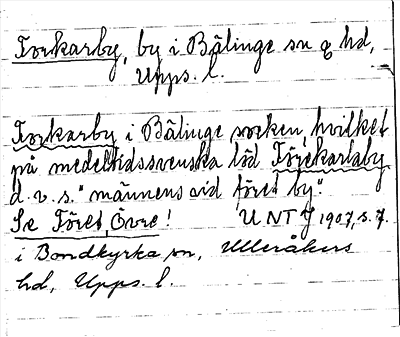 Forkarby, by i Bälinge sn o hd,
Upps. l.
Forkarby i Bälinge socken, hvilket
på medeltidssvenska löd Förekarlaby
d.v.s. "männens vid föret by".
Se Föret, Övre! UNT 1907, s. 7.
i Bondkyrka sn, Ulleråkers
hd, Upps. l.